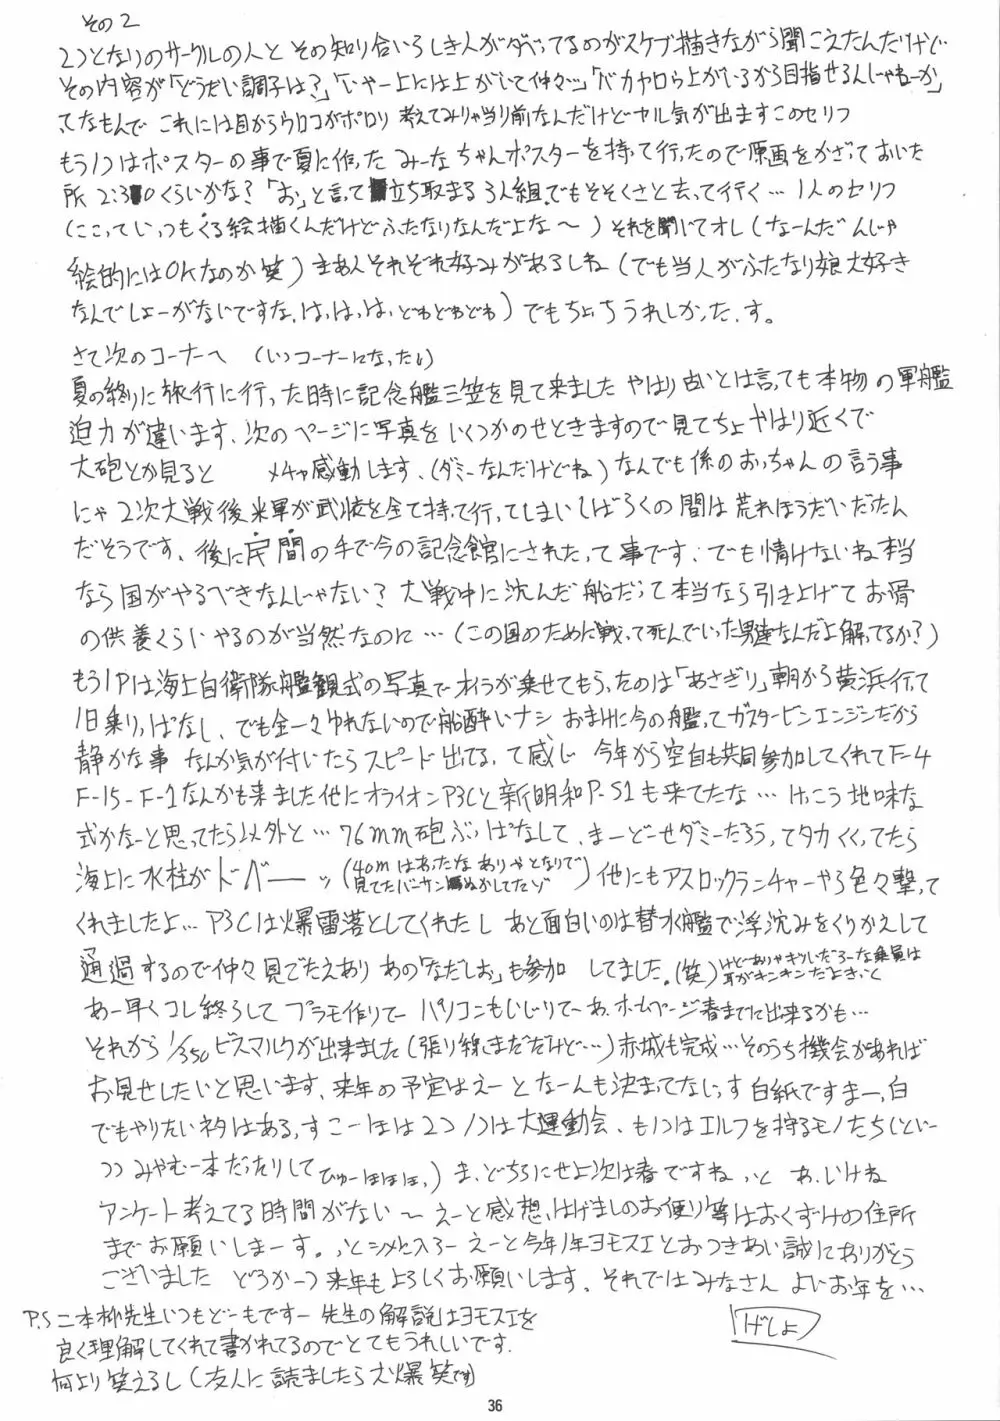 その2
2つとなりのサークルの人とその知り合いらしき人がダベってるのがスケブ描きながら聞こえたんだけど
その内容が「どうだい調子は?」「いやー上には上がいて仲々…」「バカヤロウ上がいるから目指せるんじゃねーか」
てなもんで これには目からウロコがポロリ 考えてみりゃ当り前なんだけどヤル気が出ますこのセリフ
もう1つはポスターの事で夏に作った みーなちゃんポスターを持って行ったので原画をかざっておいた
所 2:30くらいかな?「お」と言って立ち止まる3人組でもそそくさと去って行く…1人のセリフ
(ここっていっつもくる絵描くんだけどふたなりなんだよな〜)それを聞いてオレ(なーんだんじゃ
絵的にはOKなのか笑)まあ人それぞれ好みがあるしね(でも当人がふたなり娘大好き
なんでしょーがないですな、は、は、は、どわどわどわ)でもちょっちうれしかったっす。
さて次のコーナーへ (いつコーナーになったい)
夏の終りに旅行に行った時に記念艦三笠を見て来ました やはり古いとは言っても本物の軍艦
迫力が違います、次のページに写真をいくつかのせときますので見てちょ やはり近くで
大砲とか見ると メチャ感動します、(ダミーなんだけどね)なんでも係のおっちゃんの言う事
にゃ2次大戦後米軍が武装を全て持って行ってしまいしばらくの間は荒れほうだいだったん
だそうです、後に民間の手で今の記念館にされたって事です、でも情けないね本当
なら国がやるべきなんじゃない? 大戦中に沈んだ船だって本当なら引き上げてお骨
の供養くらいやるのが当然なのに…(この国のために戦って死んでいった男達なんだよ解ってるか?)
もう1Pは海上自衛隊観艦式の写真でオイラが乗せてもらったのは「あさぎり」朝から横浜行って
1日乗りっぱなし、でも全々ゆれないので船酔いナシ おまけに今の艦ってガスタービンエンジンだから
静かな事 なんか気が付いたらスピード出てるって感じ 今年から空自も共同参加してくれてF-4
F-15-F-1なんかも来ました他にオライオンP3Cと新明和P-S1も来てたな…けっこう地味な
式かなーと思ってたら以外と…76mm砲ぶっぱなして、まーどーせダミーだろうってタカくくってたら
海上に水柱がドバーーッ(40mはあったなありゃとなりで
見てたバーサンぬかしてたゾ)他にもアスロックランチャーやら色々撃って
くれましたよ…P3Cは爆雷落としてくれたし あと面白いのは潜水艦で浮沈みをくりかえして
通過するので仲々見ごたえあり あの「なだしお」も参加 してました。(笑)
あー早くコレ終らして プラモ作りてー パソコンもいじりてーあ、ホームページ春までに出来るかも…
それから1/350ビスマルクが出来ました(張り線まだだけど…)赤城も完成…そのうち機会があれば
お見せしたいと思います、来年の予定はえーと なーんも決まってないっす 白紙ですまー、白
でもやりたいネタはあるっすこーほは2つ 1つは大運動会、も1つはエルフを狩るモノたち(といー
つつみやむー本だったりして ひゅーほほほ、)ま、どちらにせよ次は春ですね、っと あ、いけね
アンケート考えてる時間がない〜 えーと感想、はげましのお便り等はおくずけの住所
までお願いしまーす。っとシメに入ろー えーと今年1年ヨモスエとおつきあい誠にありがとう
ございました どうか一つ来年もよろしくお願いします、それではみなさん よいお年を…
げしょ
P.S 二本柳先生いつもどーもですー 先生の解説はヨモスエを
良く理解してくれて書かれてるのでとてもうれしいです、
何より笑えるし(友人に読ましたら大爆笑です)
36